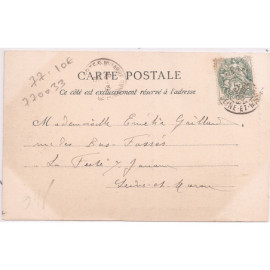 77-100
770033
CARTE POSTALE
Ce côté est exclusivement réservé à l'adresse
Mademoiselle Emélia Gaillard
rue des Bas-Fossés
La Ferté
Seine-et-Marne